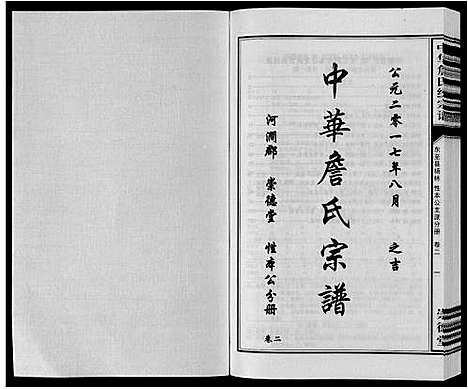 公元二零一七年八月 之吉
中華詹氏宗譜
河澗郡 崇德堂 性本公分册 卷二
中华詹氏统宗谱
东至县杨林 性本公支派分册 卷二 一
崇德堂